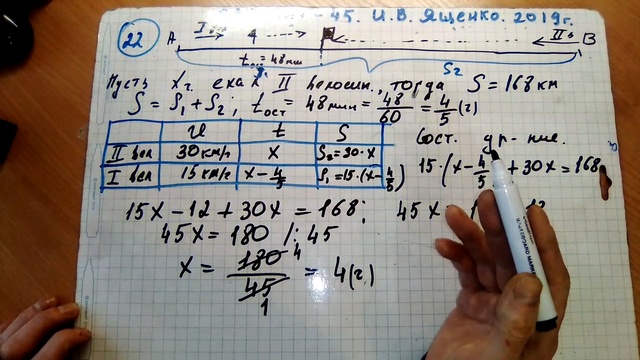 -45. И.В. Ященко. 2019г.
22 A I в 4 II в B
t ост = 48 мин S₂
Пусть x г. ехал II велосип., тогда S = 168 км
S = S₁ + S₂; t ост = 48 мин = 48/60 = 4/5 (г)
v t S
II вел 30 км/г x S₂ = 30·x
I вел 15 км/г x - 4/5 S₁ = 15·(x - 4/5)
Сост. ур-ние.
15·(x - 4/5) + 30x = 168
15x - 12 + 30x = 168; 45x =
45x = 180 /: 45
x = 180/45 = 4 (г)
4
1